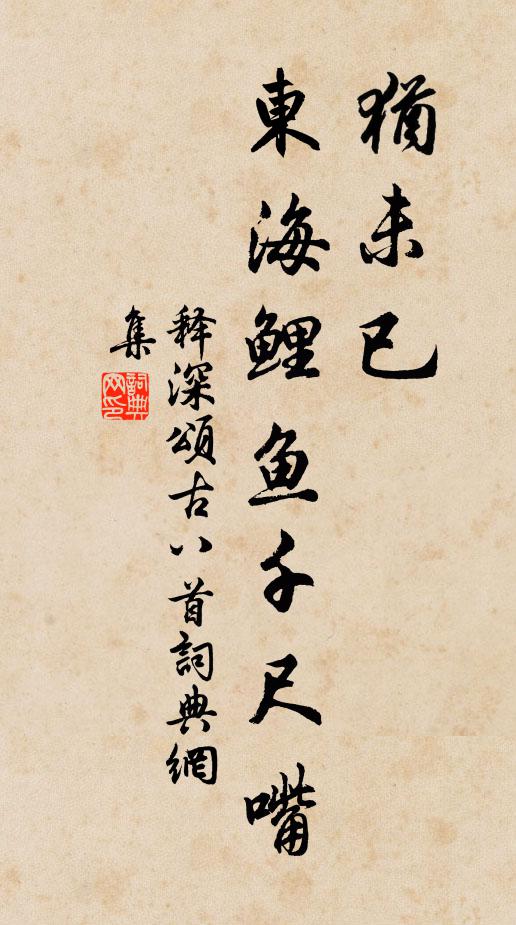 猶未已
東海鯉鱼千尺嘴
释深頌古八首詞典網
集
詞典
网印